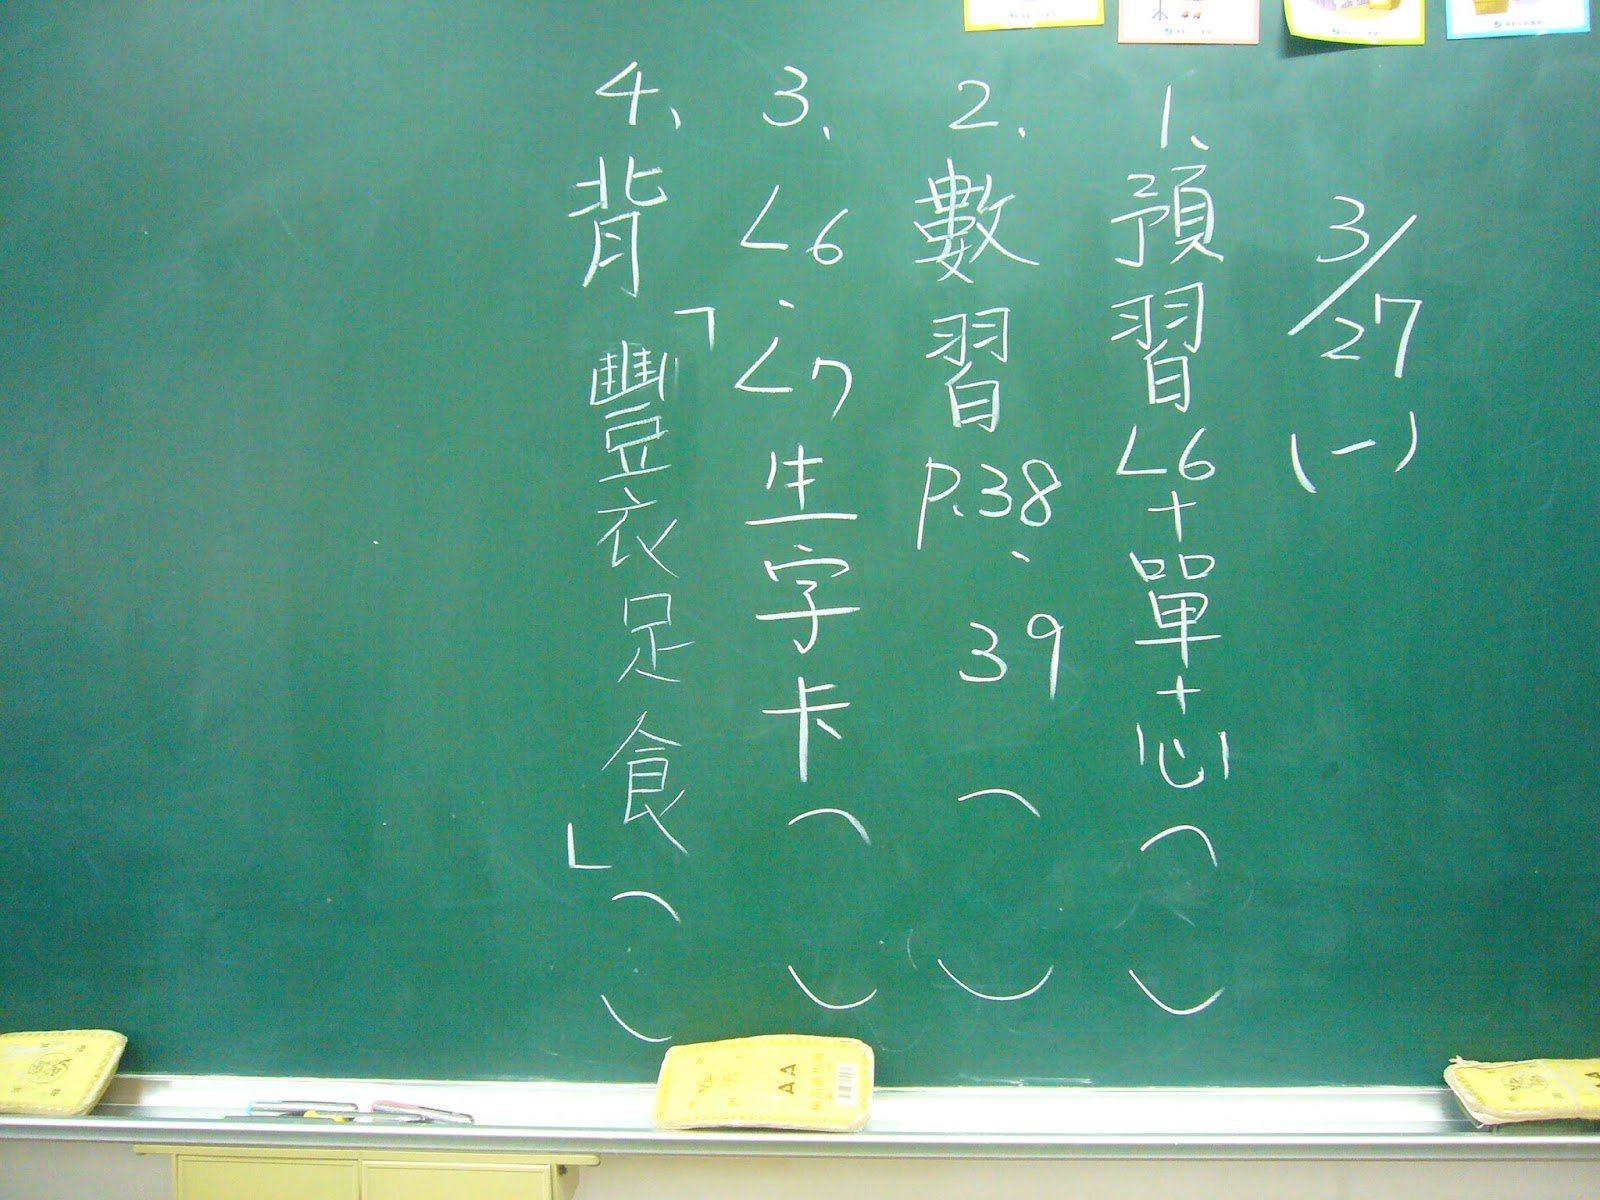 3/27(一)
1、預習L6+單+心(　)
2、數習P.38、39(　)
3、L6、L7生字卡(　)
4、背「豐衣足食」(　)
AA